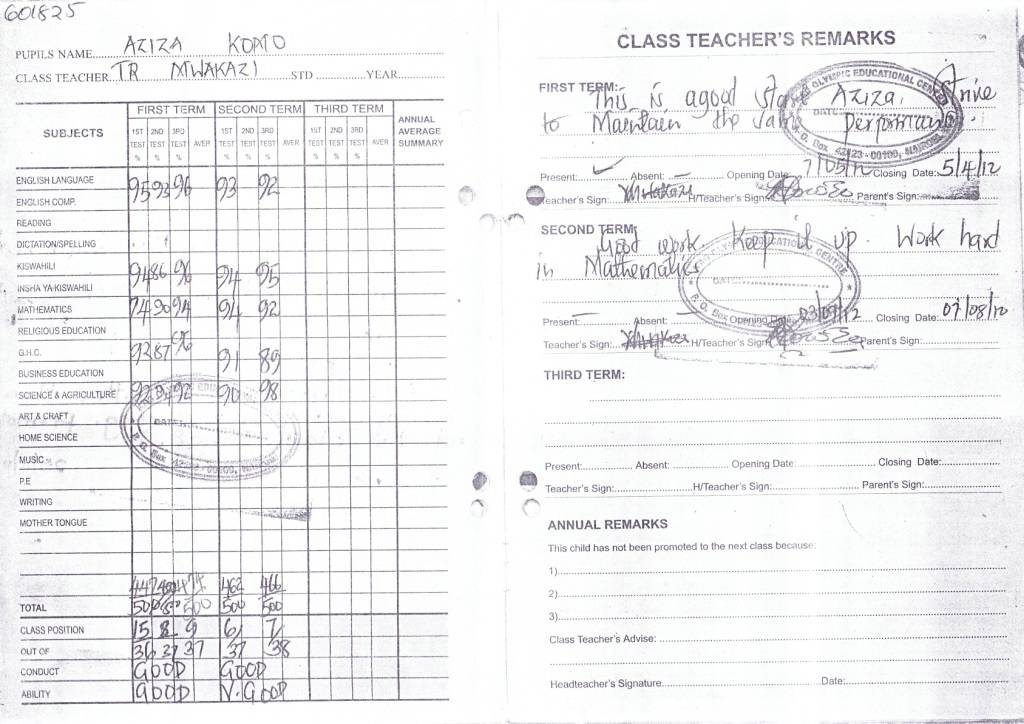 601825
PUPILS NAME AZIZA KOMO
CLASS TEACHER TR MWAKAZI STD YEAR
SUBJECTS FIRST TERM SECOND TERM THIRD TERM ANNUAL AVERAGE SUMMARY
1ST TEST % 2ND TEST % 3RD TEST % AVER 1ST TEST % 2ND TEST % 3RD TEST % AVER 1ST TEST % 2ND TEST % 3RD TEST % AVER
ENGLISH LANGUAGE 95 93 96 93 92
ENGLISH COMP.
READING
DICTATION/SPELLING
KISWAHILI 94 86 96 94 95
INSHA YA KISWAHILI
MATHEMATICS 74 90 94 94 92
RELIGIOUS EDUCATION 96
G.H.C. 92 87 91 89
BUSINESS EDUCATION
SCIENCE & AGRICULTURE 92 94 92 90 98
ART & CRAFT
HOME SCIENCE
MUSIC
P.E
WRITING
MOTHER TONGUE
447 474 462 466
TOTAL 500 500 500 500
CLASS POSITION 15 8 9 6 7
OUT OF 36 37 37 37 38
CONDUCT GOOD GOOD
ABILITY GOOD V. GOOD
CLASS TEACHER'S REMARKS
FIRST TERM:- This is agood start AZIZA. Strive
to Maintain the same performance.
OLYMPIC EDUCATIONAL CENTRE
DATE
P.O. Box 42423 - 00100, NAIROBI
Present: Absent: Opening Date 7/05/12 Closing Date: 5/4/12
Teacher's Sign: H/Teacher's Sign: Parent's Sign:
SECOND TERM: Good work. Keep it up. Work hard
in Mathematics
Present: Absent: Opening Date 03/09/12 Closing Date: 07/08/12
Teacher's Sign: H/Teacher's Sign Parent's Sign:
THIRD TERM:
Present: Absent: Opening Date: Closing Date:
Teacher's Sign: H/Teacher's Sign: Parent's Sign:
ANNUAL REMARKS
This child has not been promoted to the next class because:
1)
2)
3)
Class Teacher's Advise:
Headteacher's Signature Date: